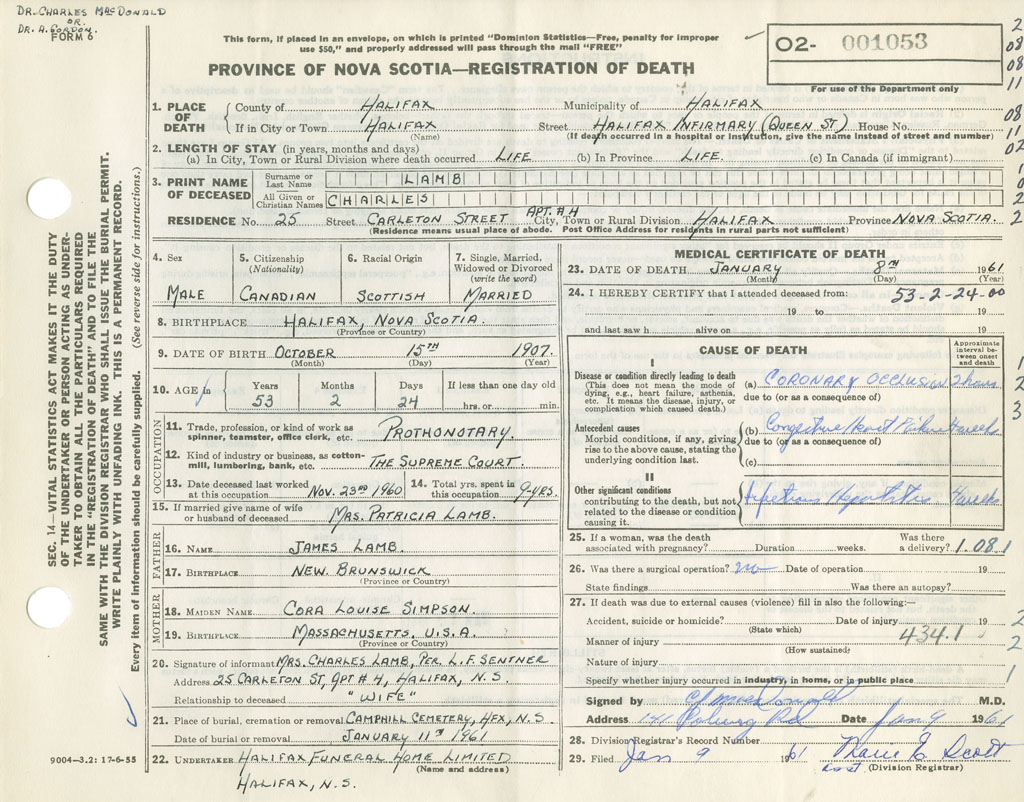 DR. CHARLES MACDONALD
OR
DR. A. GORDON.
FORM 6
This form, if placed in an envelope, on which is printed "Dominion Statistics—Free, penalty for improper
use $50," and properly addressed will pass through the mail "FREE"
PROVINCE OF NOVA SCOTIA—REGISTRATION OF DEATH
O2- 001053
For use of the Department only
1. PLACE OF DEATH County of HALIFAX Municipality of HALIFAX
If in City or Town HALIFAX (Name) Street HALIFAX INFIRMARY (QUEEN ST) House No.
(If death occurred in a hospital or institution, give the name instead of street and number)
2. LENGTH OF STAY (in years, months and days)
(a) In City, Town or Rural Division where death occurred LIFE (b) In Province LIFE. (c) In Canada (if immigrant)
3. PRINT NAME OF DECEASED
Surname or Last Name LAMB
All Given or Christian Names CHARLES
RESIDENCE No. 25 Street CARLETON STREET APT. #4 City, Town or Rural Division HALIFAX Province NOVA SCOTIA.
(Residence means usual place of abode. Post Office Address for residents in rural parts not sufficient)
4. Sex MALE
5. Citizenship (Nationality) CANADIAN
6. Racial Origin SCOTTISH
7. Single, Married, Widowed or Divorced (write the word) MARRIED
8. BIRTHPLACE HALIFAX, NOVA SCOTIA.
(Province or Country)
9. DATE OF BIRTH OCTOBER 15TH 1907.
(Month) (Day) (Year)
10. AGE Years 53 Months 2 Days 24 If less than one day old hrs. or min.
OCCUPATION
11. Trade, profession or kind of work as spinner, teamster, office clerk, etc. PROTHONOTARY.
12. Kind of industry or business, as cotton-mill, lumbering, bank, etc. THE SUPREME COURT.
13. Date deceased last worked at this occupation NOV. 23RD 1960
14. Total yrs. spent in this occupation 9-YRS.
15. If married give name of wife or husband of deceased MRS. PATRICIA LAMB.
FATHER
16. NAME JAMES LAMB.
17. BIRTHPLACE NEW. BRUNSWICK
(Province or Country)
MOTHER
18. MAIDEN NAME CORA LOUISE SIMPSON.
19. BIRTHPLACE MASSACHUSETTS, U.S.A.
(Province or Country)
20. Signature of informant MRS. CHARLES LAMB, PER. L.F. SENTNER
Address 25 CARLETON ST, APT #4, HALIFAX, N.S.
Relationship to deceased "WIFE"
21. Place of burial, cremation or removal CAMPHILL CEMETERY, HFX, N.S.
Date of burial or removal JANUARY 11TH 1961
22. UNDERTAKER HALIFAX FUNERAL HOME LIMITED
(Name and address)
HALIFAX, N.S.
9004—3.2: 17-6-55
MEDICAL CERTIFICATE OF DEATH
23. DATE OF DEATH JANUARY 8TH 1961
(Month) (Day) (Year)
24. I HEREBY CERTIFY that I attended deceased from: 53-2-24-00
19 to 19
and last saw h alive on 19
CAUSE OF DEATH
Approximate interval between onset and death
I
Disease or condition directly leading to death
(This does not mean the mode of dying, e.g., heart failure, asthenia, etc. It means the disease, injury, or complication which caused death.)
(a) CORONARY OCCLUSION 2 hours
due to (or as a consequence of)
Antecedent causes
Morbid conditions, if any, giving rise to the above cause, stating the underlying condition last.
(b) Congestive Heart Failure 4 weeks
due to (or as a consequence of)
(c)
II
Other significant conditions
contributing to the death, but not related to the disease or condition causing it.
Infectious Hepatitis 4 weeks
25. If a woman, was the death associated with pregnancy? Duration weeks. Was there a delivery? 1.08.1
26. Was there a surgical operation? no Date of operation 19
State findings Was there an autopsy?
27. If death was due to external causes (violence) fill in also the following:—
Accident, suicide or homicide? Date of injury 19
(State which)
Manner of injury 434.1
(How sustained)
Nature of injury
Specify whether injury occurred in industry, in home, or in public place
Signed by C.J. MacDonald M.D.
Address 141 Coburg Rd Date Jan 9 1961
28. Division Registrar's Record Number
29. Filed Jan 9 1961 Scott
(Division Registrar)
SEC. 14—VITAL STATISTICS ACT MAKES IT THE DUTY
OF THE UNDERTAKER OR PERSON ACTING AS UNDER-
TAKER TO OBTAIN ALL THE PARTICULARS REQUIRED
IN THE "REGISTRATION OF DEATH" AND TO FILE THE
SAME WITH THE DIVISION REGISTRAR WHO SHALL ISSUE THE BURIAL PERMIT.
WRITE PLAINLY WITH UNFADING INK. THIS IS A PERMANENT RECORD.
Every item of information should be carefully supplied. (See reverse side for instructions.)
2
08
08
11
08
11
02
1
0
2
2
1
2
3
1
2
2
1